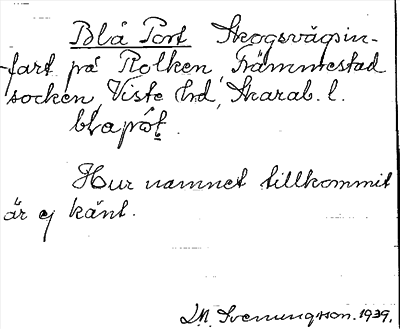 Blå Port Skogsvägsin-
fart på Rolken, Främmestad
socken, Viste hd, Skarab. l.
blapóṭ.
Hur namnet tillkommit
är ej känt.
Svenungsson. 1939.